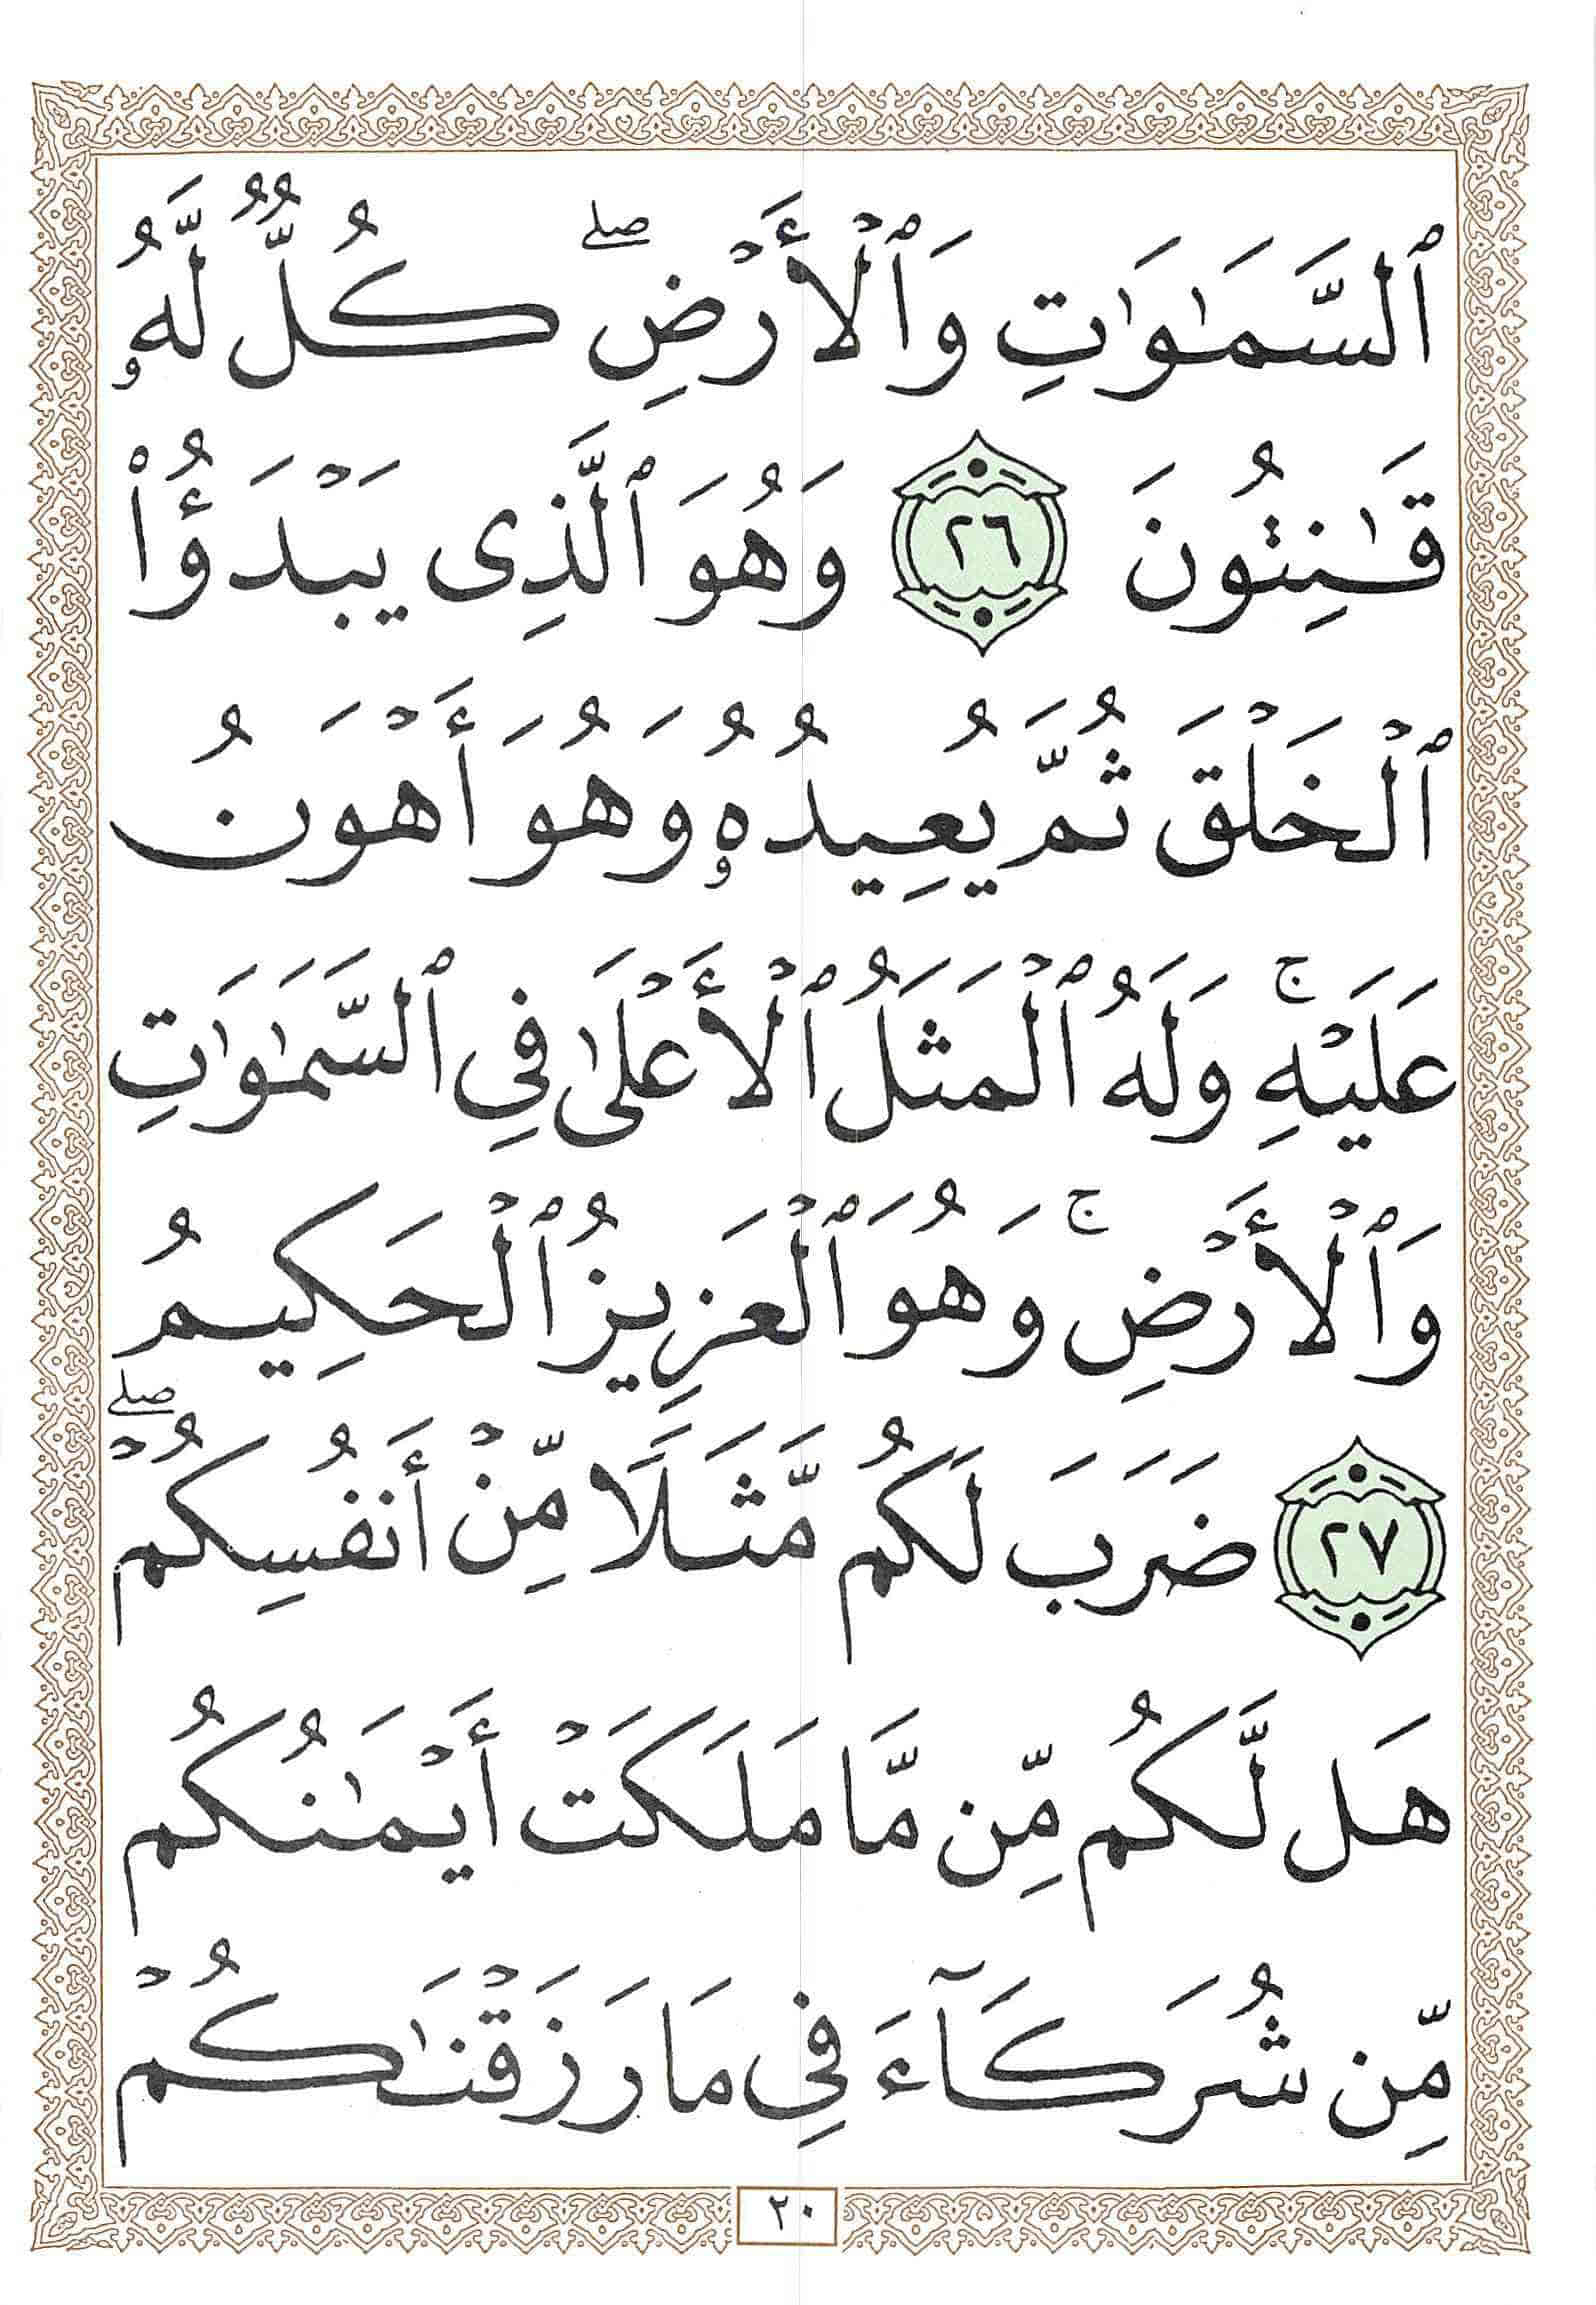 ٱلسَّمَٰوَٰتِ وَٱلْأَرْضِ ۖ كُلٌّ لَّهُۥ
قَٰنِتُونَ ٢٦ وَهُوَ ٱلَّذِى يَبْدَؤُا۟
ٱلْخَلْقَ ثُمَّ يُعِيدُهُۥ وَهُوَ أَهْوَنُ
عَلَيْهِ ۚ وَلَهُ ٱلْمَثَلُ ٱلْأَعْلَىٰ فِى ٱلسَّمَٰوَٰتِ
وَٱلْأَرْضِ ۚ وَهُوَ ٱلْعَزِيزُ ٱلْحَكِيمُ
٢٧ ضَرَبَ لَكُم مَّثَلًا مِّنْ أَنفُسِكُمْ ۖ
هَل لَّكُم مِّن مَّا مَلَكَتْ أَيْمَٰنُكُم
مِّن شُرَكَآءَ فِى مَا رَزَقْنَٰكُمْ
٢٠